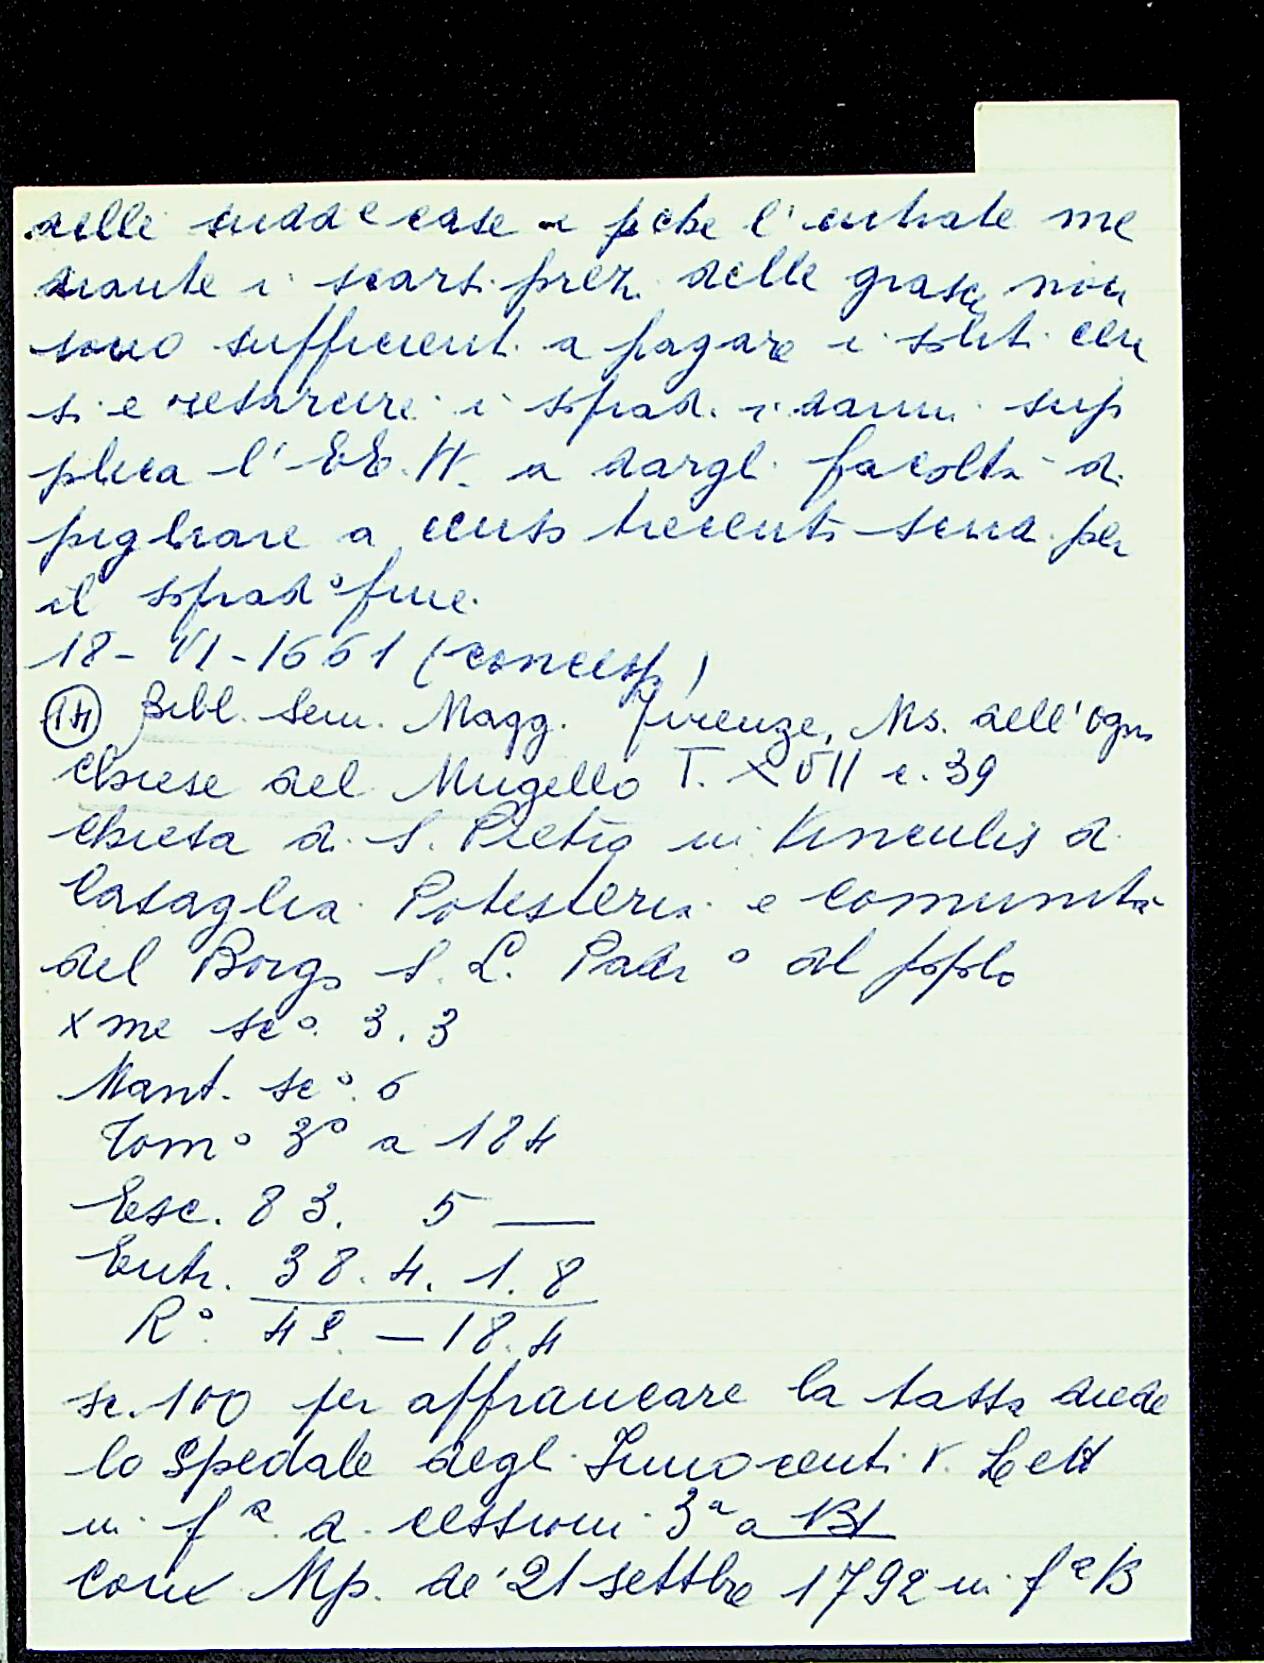 delle sudde case e pche l'entrate me
diante i scarsi prezzi delle grasce non
sono sufficienti a pagare i soliti cen
si e resarcire i soprad. i danni sup
plica l'EE.VV. a dargli facoltà di
pigliare a censo trecento scudi per
il soprad° fine.
18-VI-1661 (concesso)
14 Bibl. Sem. Magg. Firenze, Ms. dell'Ogn
Chiese del Mugello T. XVII c. 39
Chiesa di S. Pietro in Vinculis di
Casaglia Potesteria e comunità
del Borgo S. L. Padr° al popolo
Xme sc°. 3.3
Mant. sc°. 6
Tom° 3° a 184
Esc. 83. 5 —
Entr. 38.4.1.8
R°. 43. — 18.4
sc. 100 per affrancare la tassa diede
lo Spedale degli Innocenti V. Lett
in fa di cessioni 3a a 131
come Mp. de' 21 settbre 1792 in fa B